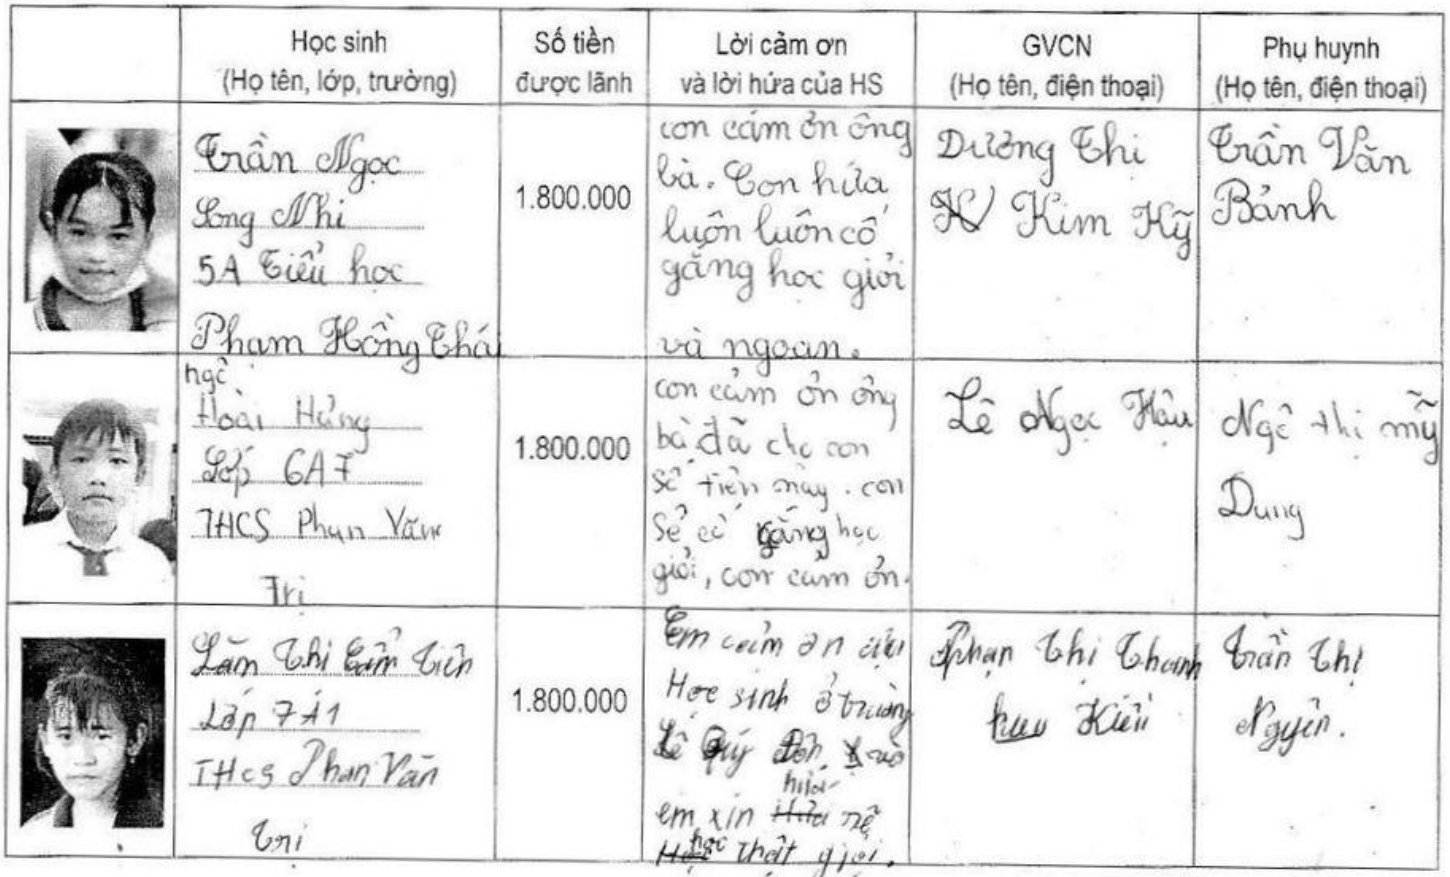 Học sinh
(Họ tên, lớp, trường)
Số tiền
được lãnh
Lời cảm ơn
và lời hứa của HS
GVCN
(Họ tên, điện thoại)
Phụ huynh
(Họ tên, điện thoại)
Trần Ngọc
Song Nhi
5A Tiểu học
Phạm Hồng Thái
1.800.000
con cám ơn ông
bà. Con hứa
luôn luôn cố
gắng học giỏi
và ngoan.
Dương Thị
Kim Kỹ
Trần Văn
Bảnh
ngô
Hoài Hưng
Lớp 6A7
THCS Phan Văn
Trị
1.800.000
con cảm ơn ông
bà đã cho con
số tiền này. con
sẽ cố gắng học
giỏi, con cảm ơn.
Lê Ngọc Hậu
Ngô thị mỹ
Dung
Lâm Thị Cẩm Tiên
Lớp 7A1
THCS Phan Văn
Trị
1.800.000
Em cảm ơn cựu
Học sinh ở trường
Lê Quý Đôn, và
hứa
em xin sẽ
học thật giỏi.
Phan Thị Thanh
Kiều
Trần Thị
Nguyên.